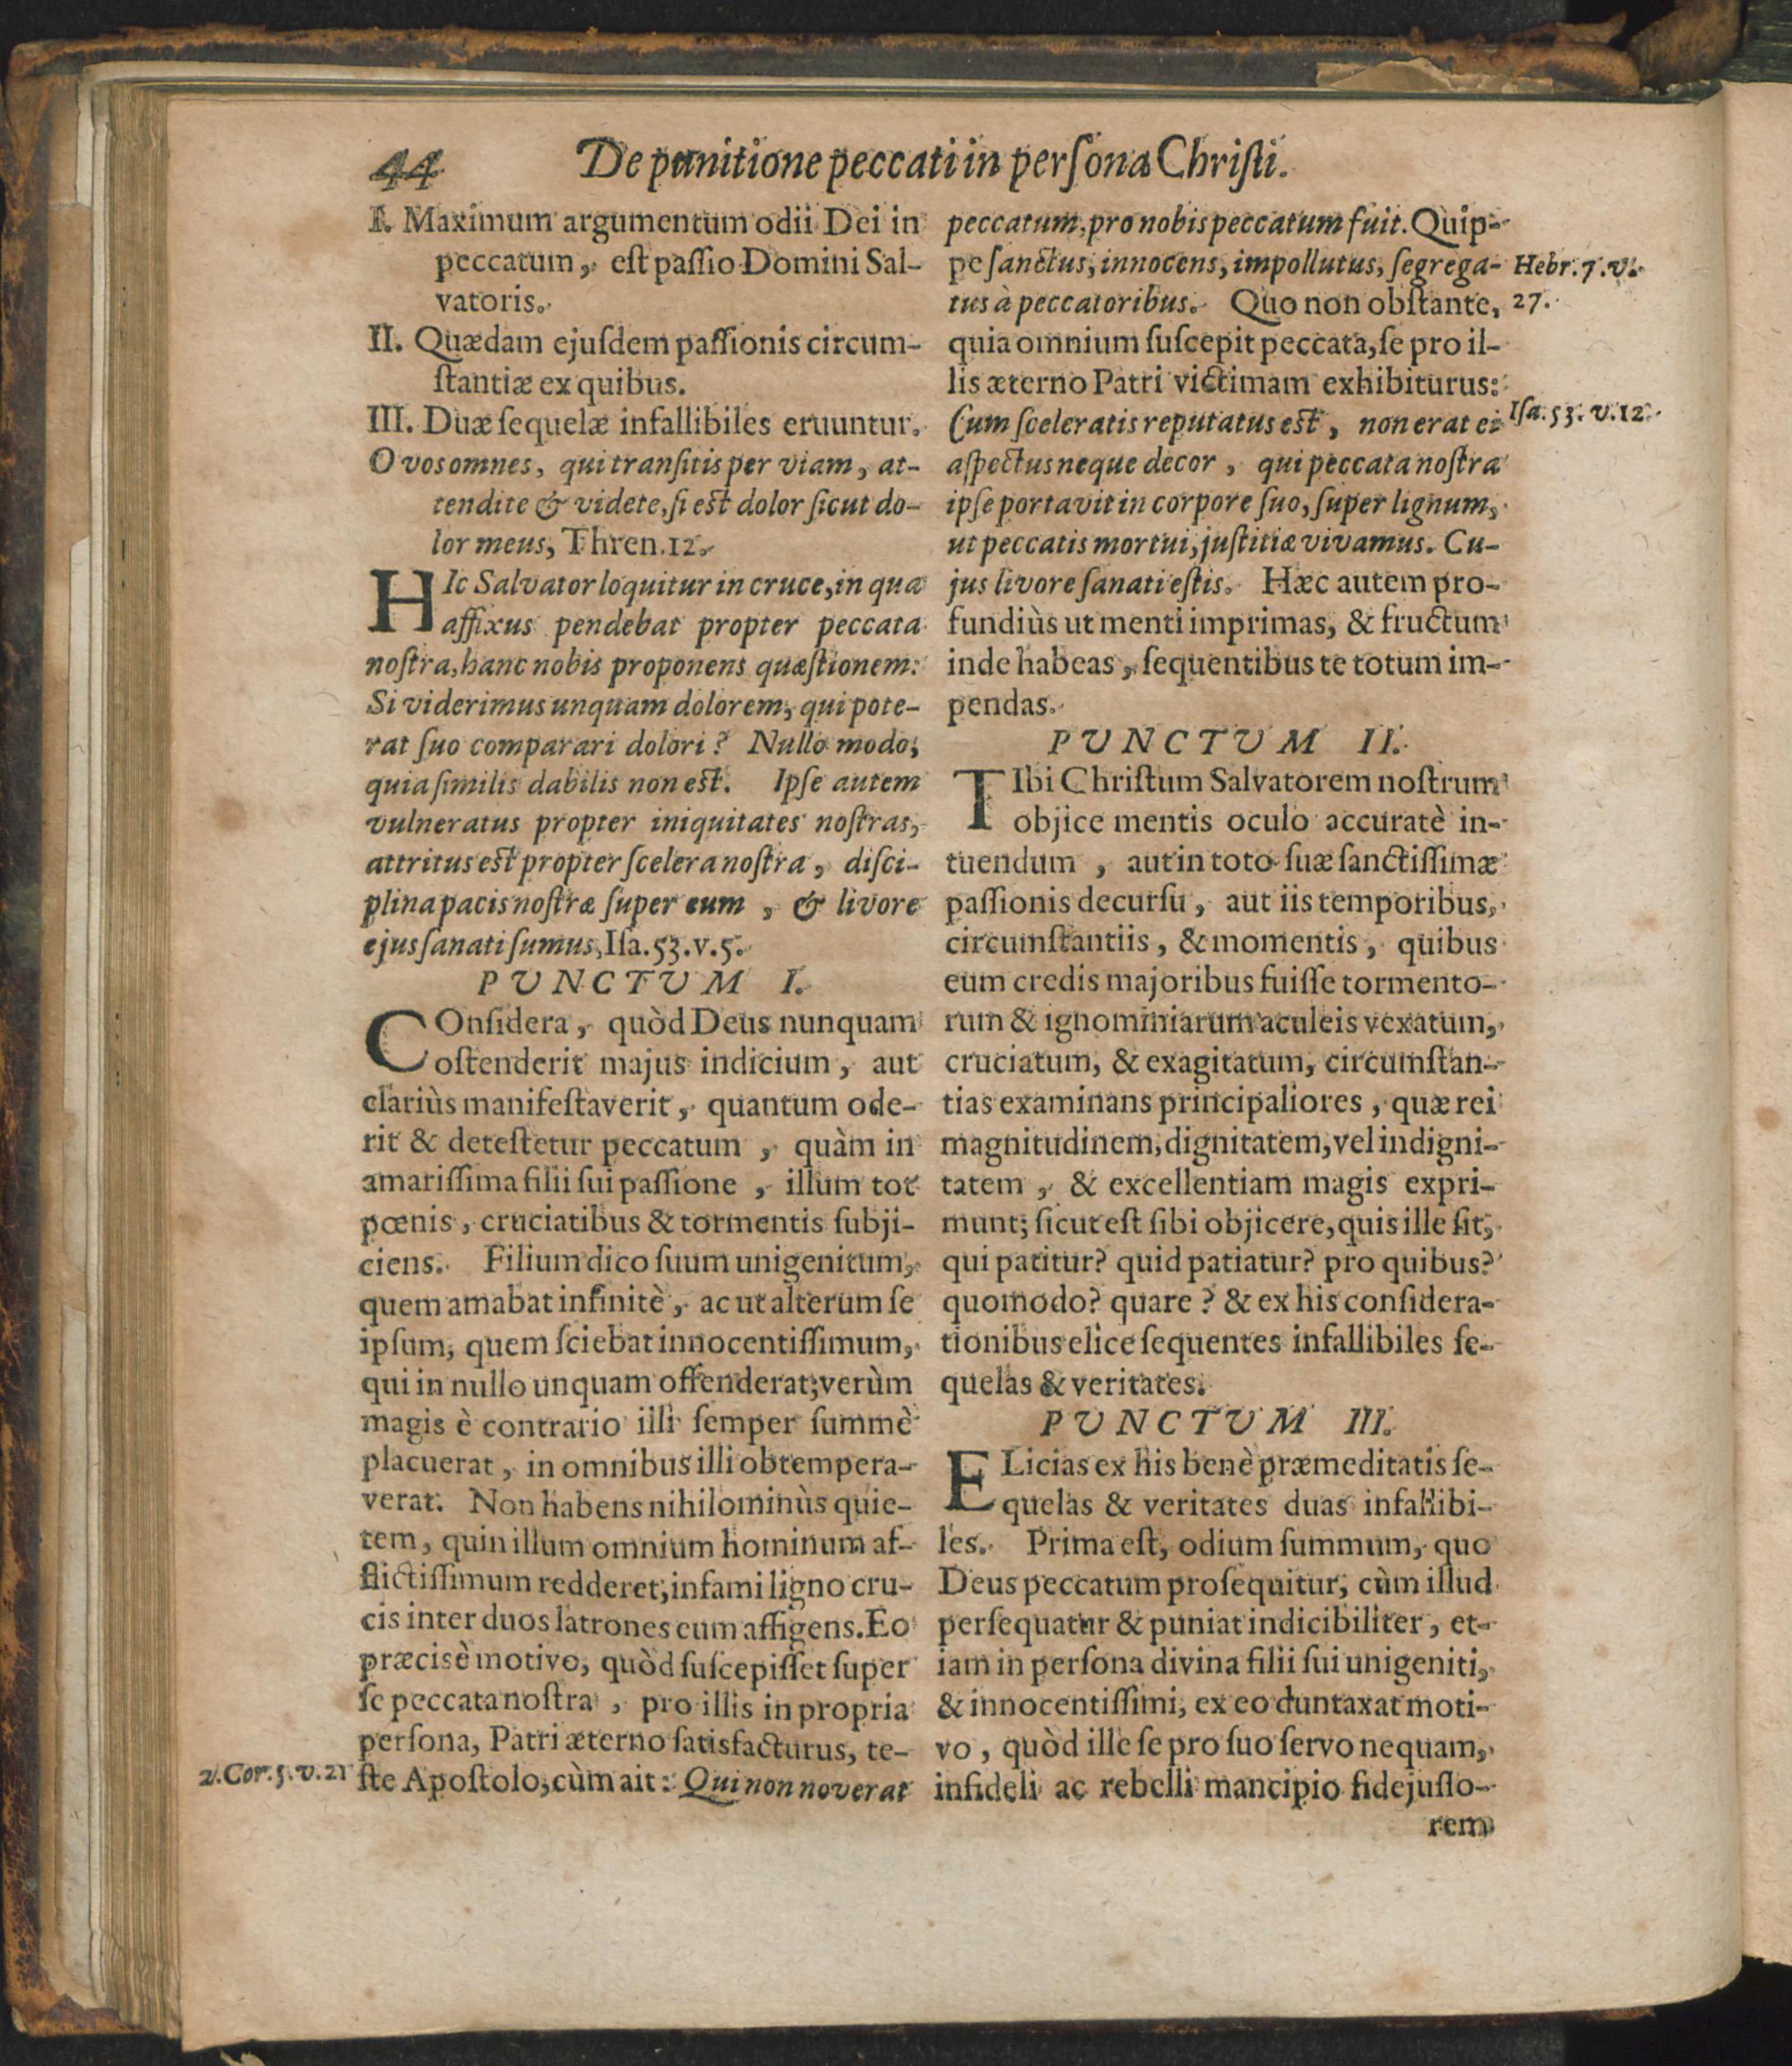 44 De punitione peccati in perſona Chriſti.
I. Maximum argumentum odii Dei in
peccatum, eſt paſſio Domini Sal-
vatoris.
II. Quædam ejuſdem paſſionis circum-
ſtantiæ ex quibus.
III. Duæ ſequelæ infallibiles eruuntur.
O vos omnes, qui tranſitis per viam, at-
tendite & videte, ſi eſt dolor ſicut do-
lor meus, Thren. 12.
HIc Salvator loquitur in cruce, in qua
affixus pendebat propter peccata
noſtra, hanc nobis proponens quæſtionem:
Si viderimus unquam dolorem, qui pote-
rat ſuo comparari dolori? Nullo modo,
quia ſimilis dabilis non eſt. Ipſe autem
vulneratus propter iniquitates noſtras,
attritus eſt propter ſcelera noſtra, diſci-
plina pacis noſtræ ſuper eum, & livore
ejus ſanati ſumus, Iſa. 53. v. 5.
PUNCTUM I.
COnſidera, quòd Deus nunquam
oſtenderit majus indicium, aut
clariùs manifeſtaverit, quantum ode-
rit & deteſtetur peccatum, quàm in
amariſſima filii ſui paſſione, illum tot
pœnis, cruciatibus & tormentis ſubji-
ciens. Filium dico ſuum unigenitum,
quem amabat infinitè, ac ut alterum ſe
ipſum, quem ſciebat innocentiſſimum,
qui in nullo unquam offenderat; verùm
magis è contrario illi ſemper ſummè
placuerat, in omnibus illi obtempera-
verat. Non habens nihilominùs quie-
tem, quin illum omnium hominum af-
flictiſſimum redderet, infami ligno cru-
cis inter duos latrones eum affigens. Eo
præcisè motivo, quòd ſuſcepiſſet ſuper
ſe peccata noſtra, pro illis in propria
perſona, Patri æterno ſatisfacturus, te-
ſte Apoſtolo, cùm ait: Qui non noverat
2. Cor. 5. v. 21
peccatum, pro nobis peccatum fuit. Quip-
pe ſanctus, innocens, impollutus, ſegrega-
tus à peccatoribus. Quo non obſtante,
Hebr. 7. v.
27.
quia omnium ſuſcepit peccata, ſe pro il-
lis æterno Patri victimam exhibiturus:
Cum ſceleratis reputatus eſt, non erat ei
Iſa. 53. v. 12.
aſpectus neque decor, qui peccata noſtra
ipſe portavit in corpore ſuo, ſuper lignum,
ut peccatis mortui, juſtitiæ vivamus. Cu-
jus livore ſanati eſtis. Hæc autem pro-
fundiùs ut menti imprimas, & fructum
inde habeas, ſequentibus te totum im-
pendas.
PUNCTUM II.
TIbi Chriſtum Salvatorem noſtrum
objice mentis oculo accuratè in-
tuendum, aut in toto ſuæ ſanctiſſimæ
paſſionis decurſu, aut iis temporibus,
circumſtantiis, & momentis, quibus
eum credis majoribus fuiſſe tormento-
rum & ignominiarum aculeis vexatum,
cruciatum, & exagitatum, circumſtan-
tias examinans principaliores, quæ rei
magnitudinem, dignitatem, vel indigni-
tatem, & excellentiam magis expri-
munt; ſicut eſt ſibi objicere, quis ille ſit,
qui patitur? quid patiatur? pro quibus?
quomodo? quare? & ex his conſidera-
tionibus elice ſequentes infallibiles ſe-
quelas & veritates.
PUNCTUM III.
ELicias ex his benè præmeditatis ſe-
quelas & veritates duas infallibi-
les. Prima eſt, odium ſummum, quo
Deus peccatum proſequitur, cùm illud
perſequatur & puniat indicibiliter, et-
iam in perſona divina filii ſui unigeniti,
& innocentiſſimi, ex eo duntaxat moti-
vo, quòd ille ſe pro ſuo ſervo nequam,
infideli ac rebelli mancipio fidejuſſo-
rem